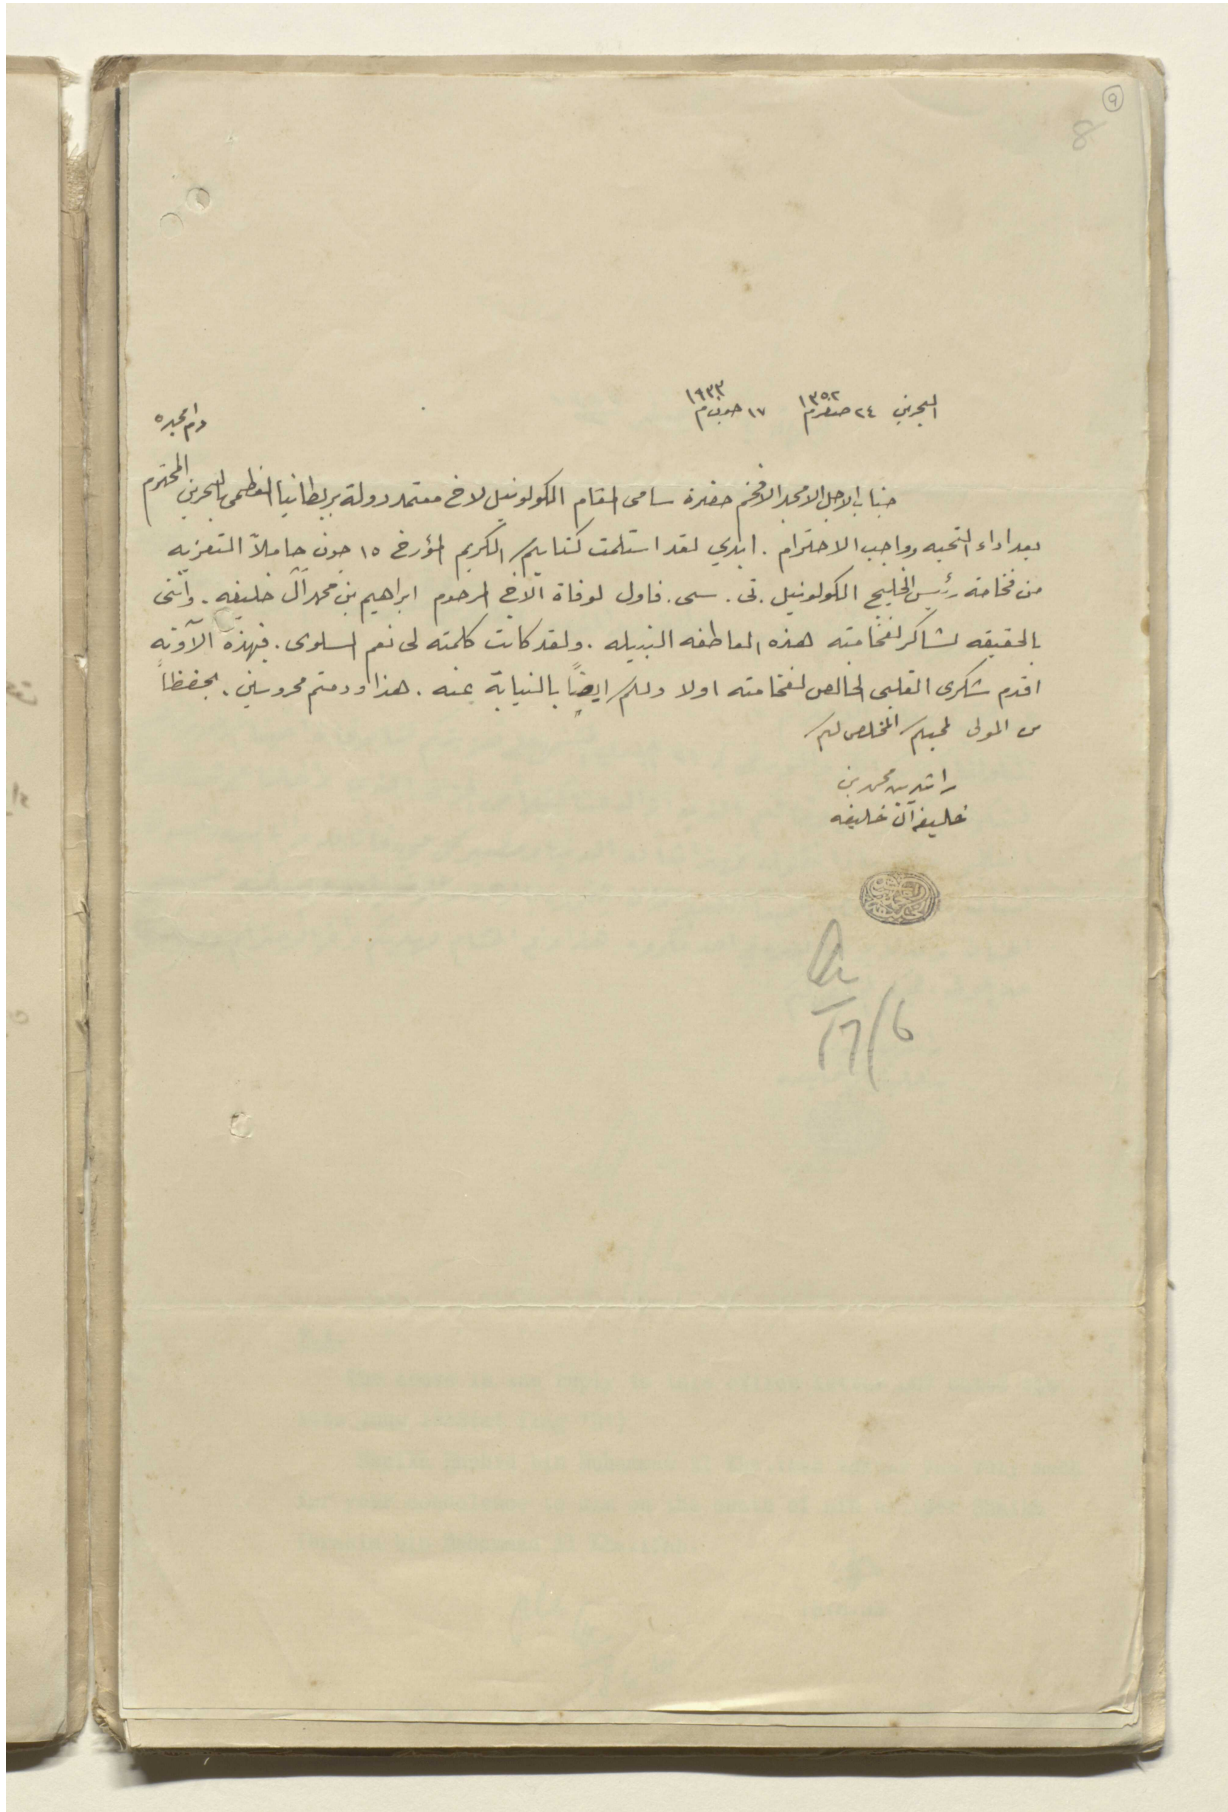 ٩
8
البحرين ٢٤ صفر ١٣٥٢ م ١٧ جون ١٩٣٣ م
دام مجده
جناب الاجل الامجد الافخم حضرة سامى المقام الكولونيل لاخ معتمد دولة بريطانيا العظمى بالبحرين المحترم
بعد اداء التحيه وواجب الاحترام . ابدي لقد استلمت كتابكم الكريم المؤرخ ١٥ جون حاملاً التعزيه
من فخامة رئيس الخليج الكولونيل . تى . سى . فاول لوفاة الاخ المرحوم ابراهيم بن محمد آل خليفه . وأننى
بالحقيقه لشاكر لفخامته هذه العاطفه النبيله . ولقد كانت كلمته لى نعم السلوى . فبهذه الآونه
اقدم شكرى القلبى الخالص لفخامته اولا ولكم ايضاً بالنيابة عنه . هذا ودمتم محروسين . بحفظاً
من المولى لمحبكم المخلص لكم
راشد بن محمد بن
خليفه آل خليفه
17/6